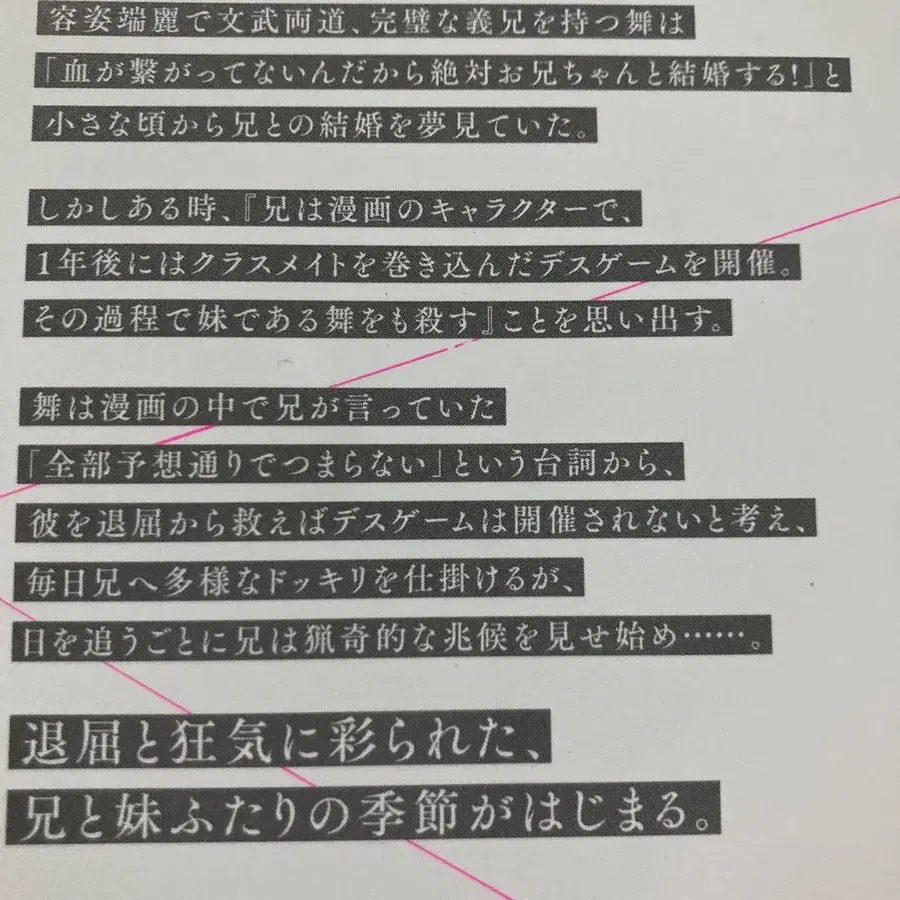 容姿端麗で文武両道、完璧な義兄を持つ舞は
「血が繋がってないんだから絶対お兄ちゃんと結婚する！」と
小さな頃から兄との結婚を夢見ていた。
しかしある時、『兄は漫画のキャラクターで、
1年後にはクラスメイトを巻き込んだデスゲームを開催。
その過程で妹である舞をも殺す』ことを思い出す。
舞は漫画の中で兄が言っていた
「全部予想通りでつまらない」という台詞から、
彼を退屈から救えばデスゲームは開催されないと考え、
毎日兄へ多様なドッキリを仕掛けるが、
日を追うごとに兄は猟奇的な兆候を見せ始め……。
退屈と狂気に彩られた、
兄と妹ふたりの季節がはじまる。